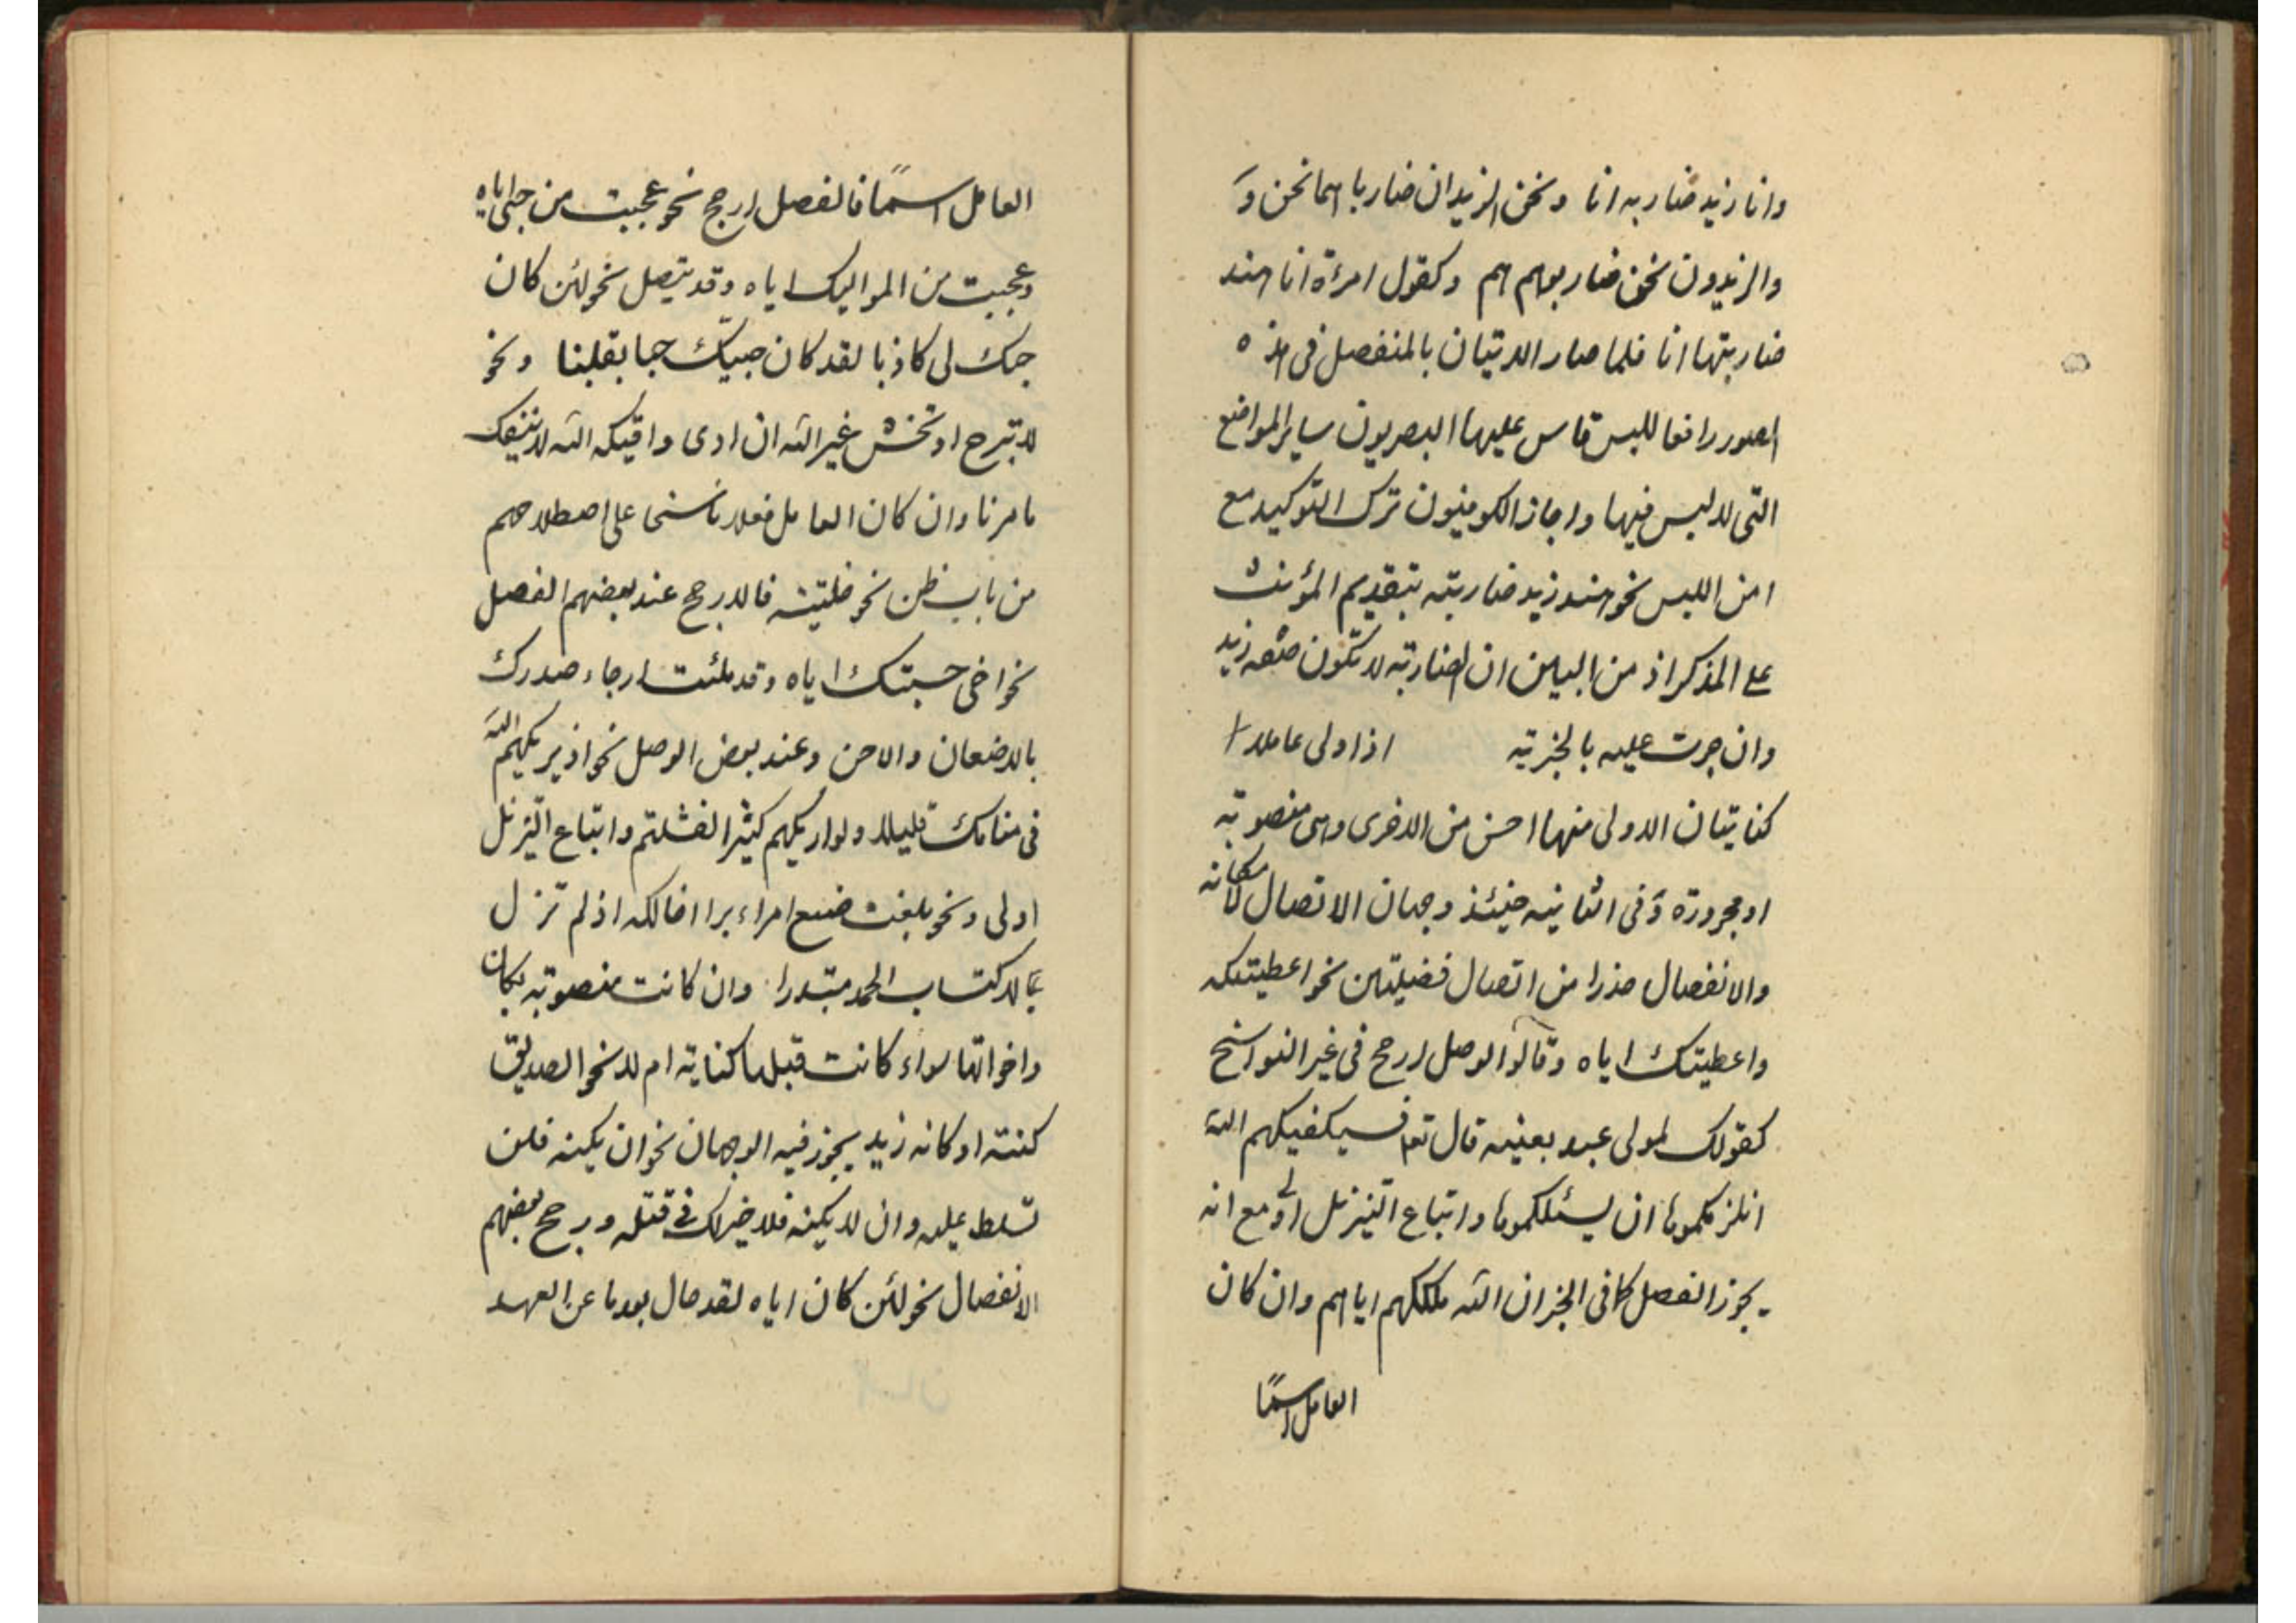 وانا زيد ضاربه انا ونحن الزيدان ضارباهما نحن و
والزيدون نحن ضاربوهم هم وكقول امرءة انا هند
ضاربتها انا فلما صار الاتيان بالمنفصل فى هذه
الصور رافعا للبس قاس عليها البصريون ساير المواضع
التى لا لبس فيها واجاز الكوفيون ترك التوكيد مع
امن اللبس نحو هند زيد ضاربته بتقديم المؤنث
على المذكر اذ من البين ان الضاربة لا تكون صفة زيد
وان جرت عليه بالخبرية اذا ولى عاملا
كنايتان الاولى منها احسن من الاخرى وهى منصوبة
او مجرورة وفى الثانية حينئذ وجهان الاتصال لامكانه
والانفصال حذرا من اتصال فضيلتين نحو اعطيتكه
واعطيتك اياه وقالوا الوصل ارجح فى غير النواسخ
كقولك لمولى عبد بعنيه قال تعا فسيكفيكهم الله
انلزمكموها ان يسئلكموها واتباع التنزيل اولى مع انه
يجوز الفصل كما فى الخبر ان الله ملككهم اياهم وان كان
العامل اسمًا
العامل اسمًا فالفصل ارجح نحو عجبت من حبى اياه
وعجبت من المواليك اياه وقد يتصل نحو لئن كان
حبك لى كاذبا لقد كان حبيك حبا بقلبنا ونحو
لا تبرح او تخش غير الله ان ادى واقيكه الله لا ينفك
مامرنا وان كان العامل فعلا ناسخى على اصطلاحهم
من باب ظن نحو خلتيه فالارجح عند بعضهم الفصل
نحو اخى حسبتك اياه وقد ملئت ارجاء صدرك
بالاضغان والاحن وعند بعض الوصل نحو اذ يريكهم الله
فى منامك قليلا ولو اريكهم كثيرا لفشلتم واتباع التنزيل
اولى ونحو بلغت صنع امراء برا اخالكه اذ لم تزل
لاكتساب الحمد مبتدرا وان كانت منصوبة بكان
واخواتها سواء كانت قبلها كناية ام لا نحو الصديق
كنته او كانه زيد يجوز فيه الوجهان نحو ان يكنه فلن
تسلط عليه وان لا يكنه فلا خير لك فى قتله ورجح بعضهم
الانفصال نحو لئن كان اياه لقد حال بعدنا عن العهد